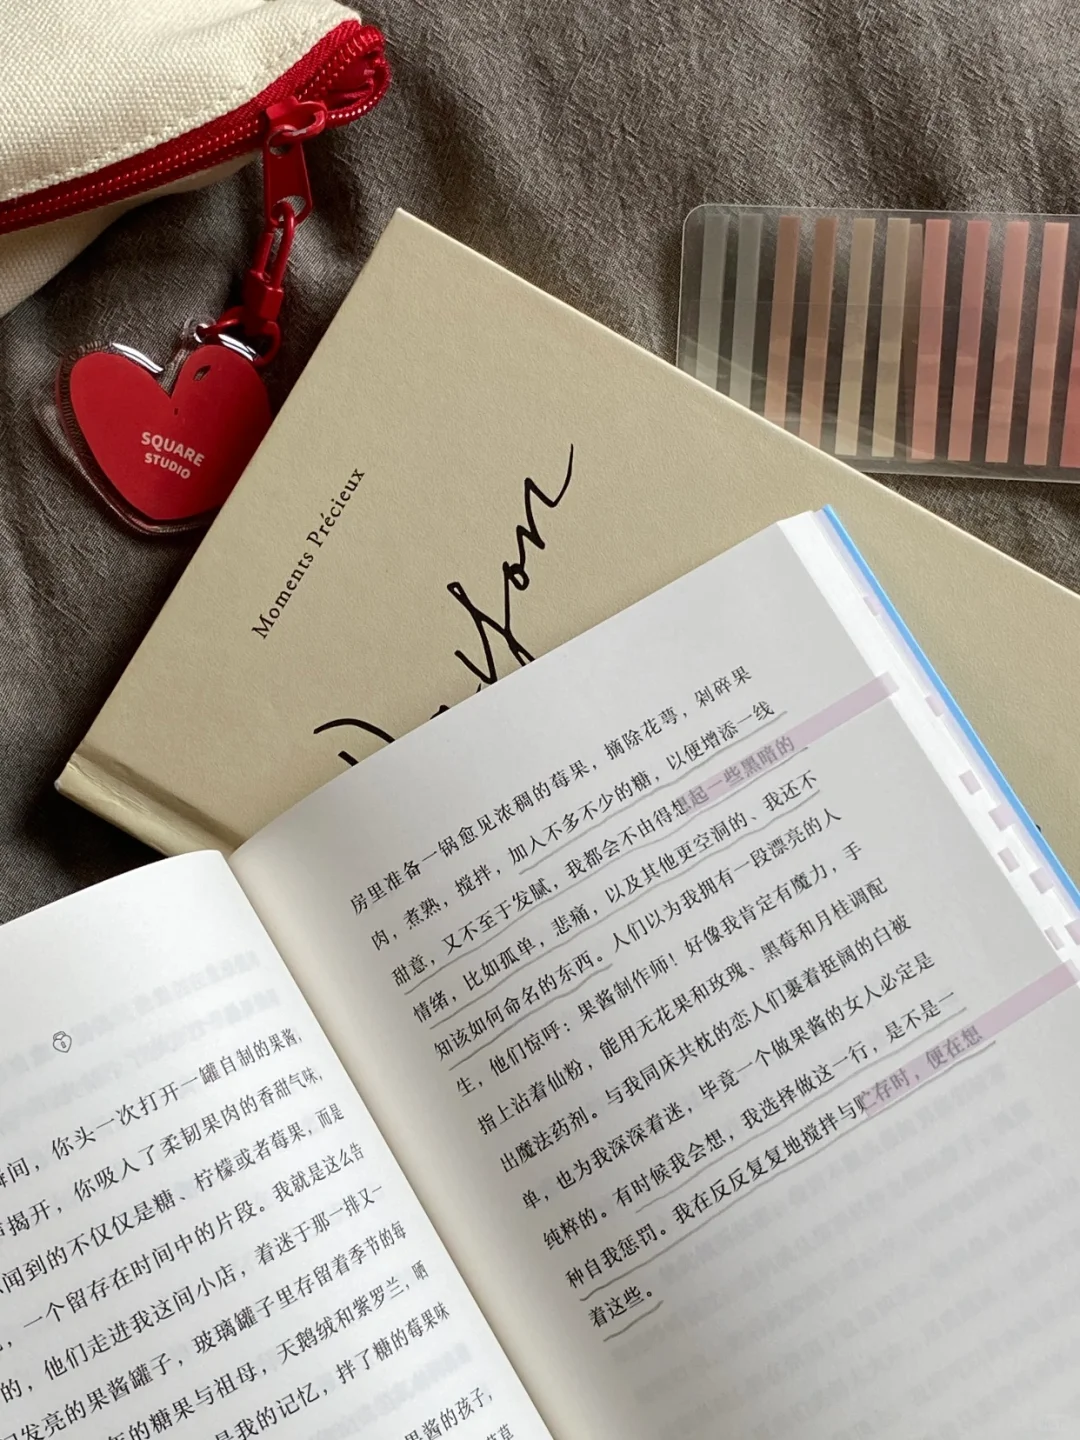 SQUARE
STUDIO
Moments Précieux
房里准备一锅愈见浓稠的莓果，摘除花萼，剁碎果
肉，煮熟，搅拌，加入不多不少的糖，以便增添一线
甜意，又不至于发腻，我都会不由得想起一些黑暗的
情绪，比如孤单，悲痛，以及其他更空洞的、我还不
知该如何命名的东西。人们以为我拥有一段漂亮的人
生，他们惊呼：果酱制作师！好像我肯定有魔力，手
指上沾着仙粉，能用无花果和玫瑰、黑莓和月桂调配
出魔法药剂。与我同床共枕的恋人们裹着挺阔的白被
单，也为我深深着迷，毕竟一个做果酱的女人必定是
纯粹的。有时候我会想，我选择做这一行，是不是一
种自我惩罚。我在反反复复地搅拌与贮存时，便在想
着这些。
瞬间，你头一次打开一罐自制的果酱，
揭开，你吸入了柔韧果肉的香甜气味，
闻到的不仅仅是糖、柠檬或者莓果，而是
，一个留存在时间中的片段。我就是这么告
的，他们走进我这间小店，着迷于那一排又一
发亮的果酱罐子，玻璃罐子里存留着季节的每
的糖果与祖母，天鹅绒和紫罗兰，晒
是我的记忆，拌了糖的莓果味
果酱的孩子，